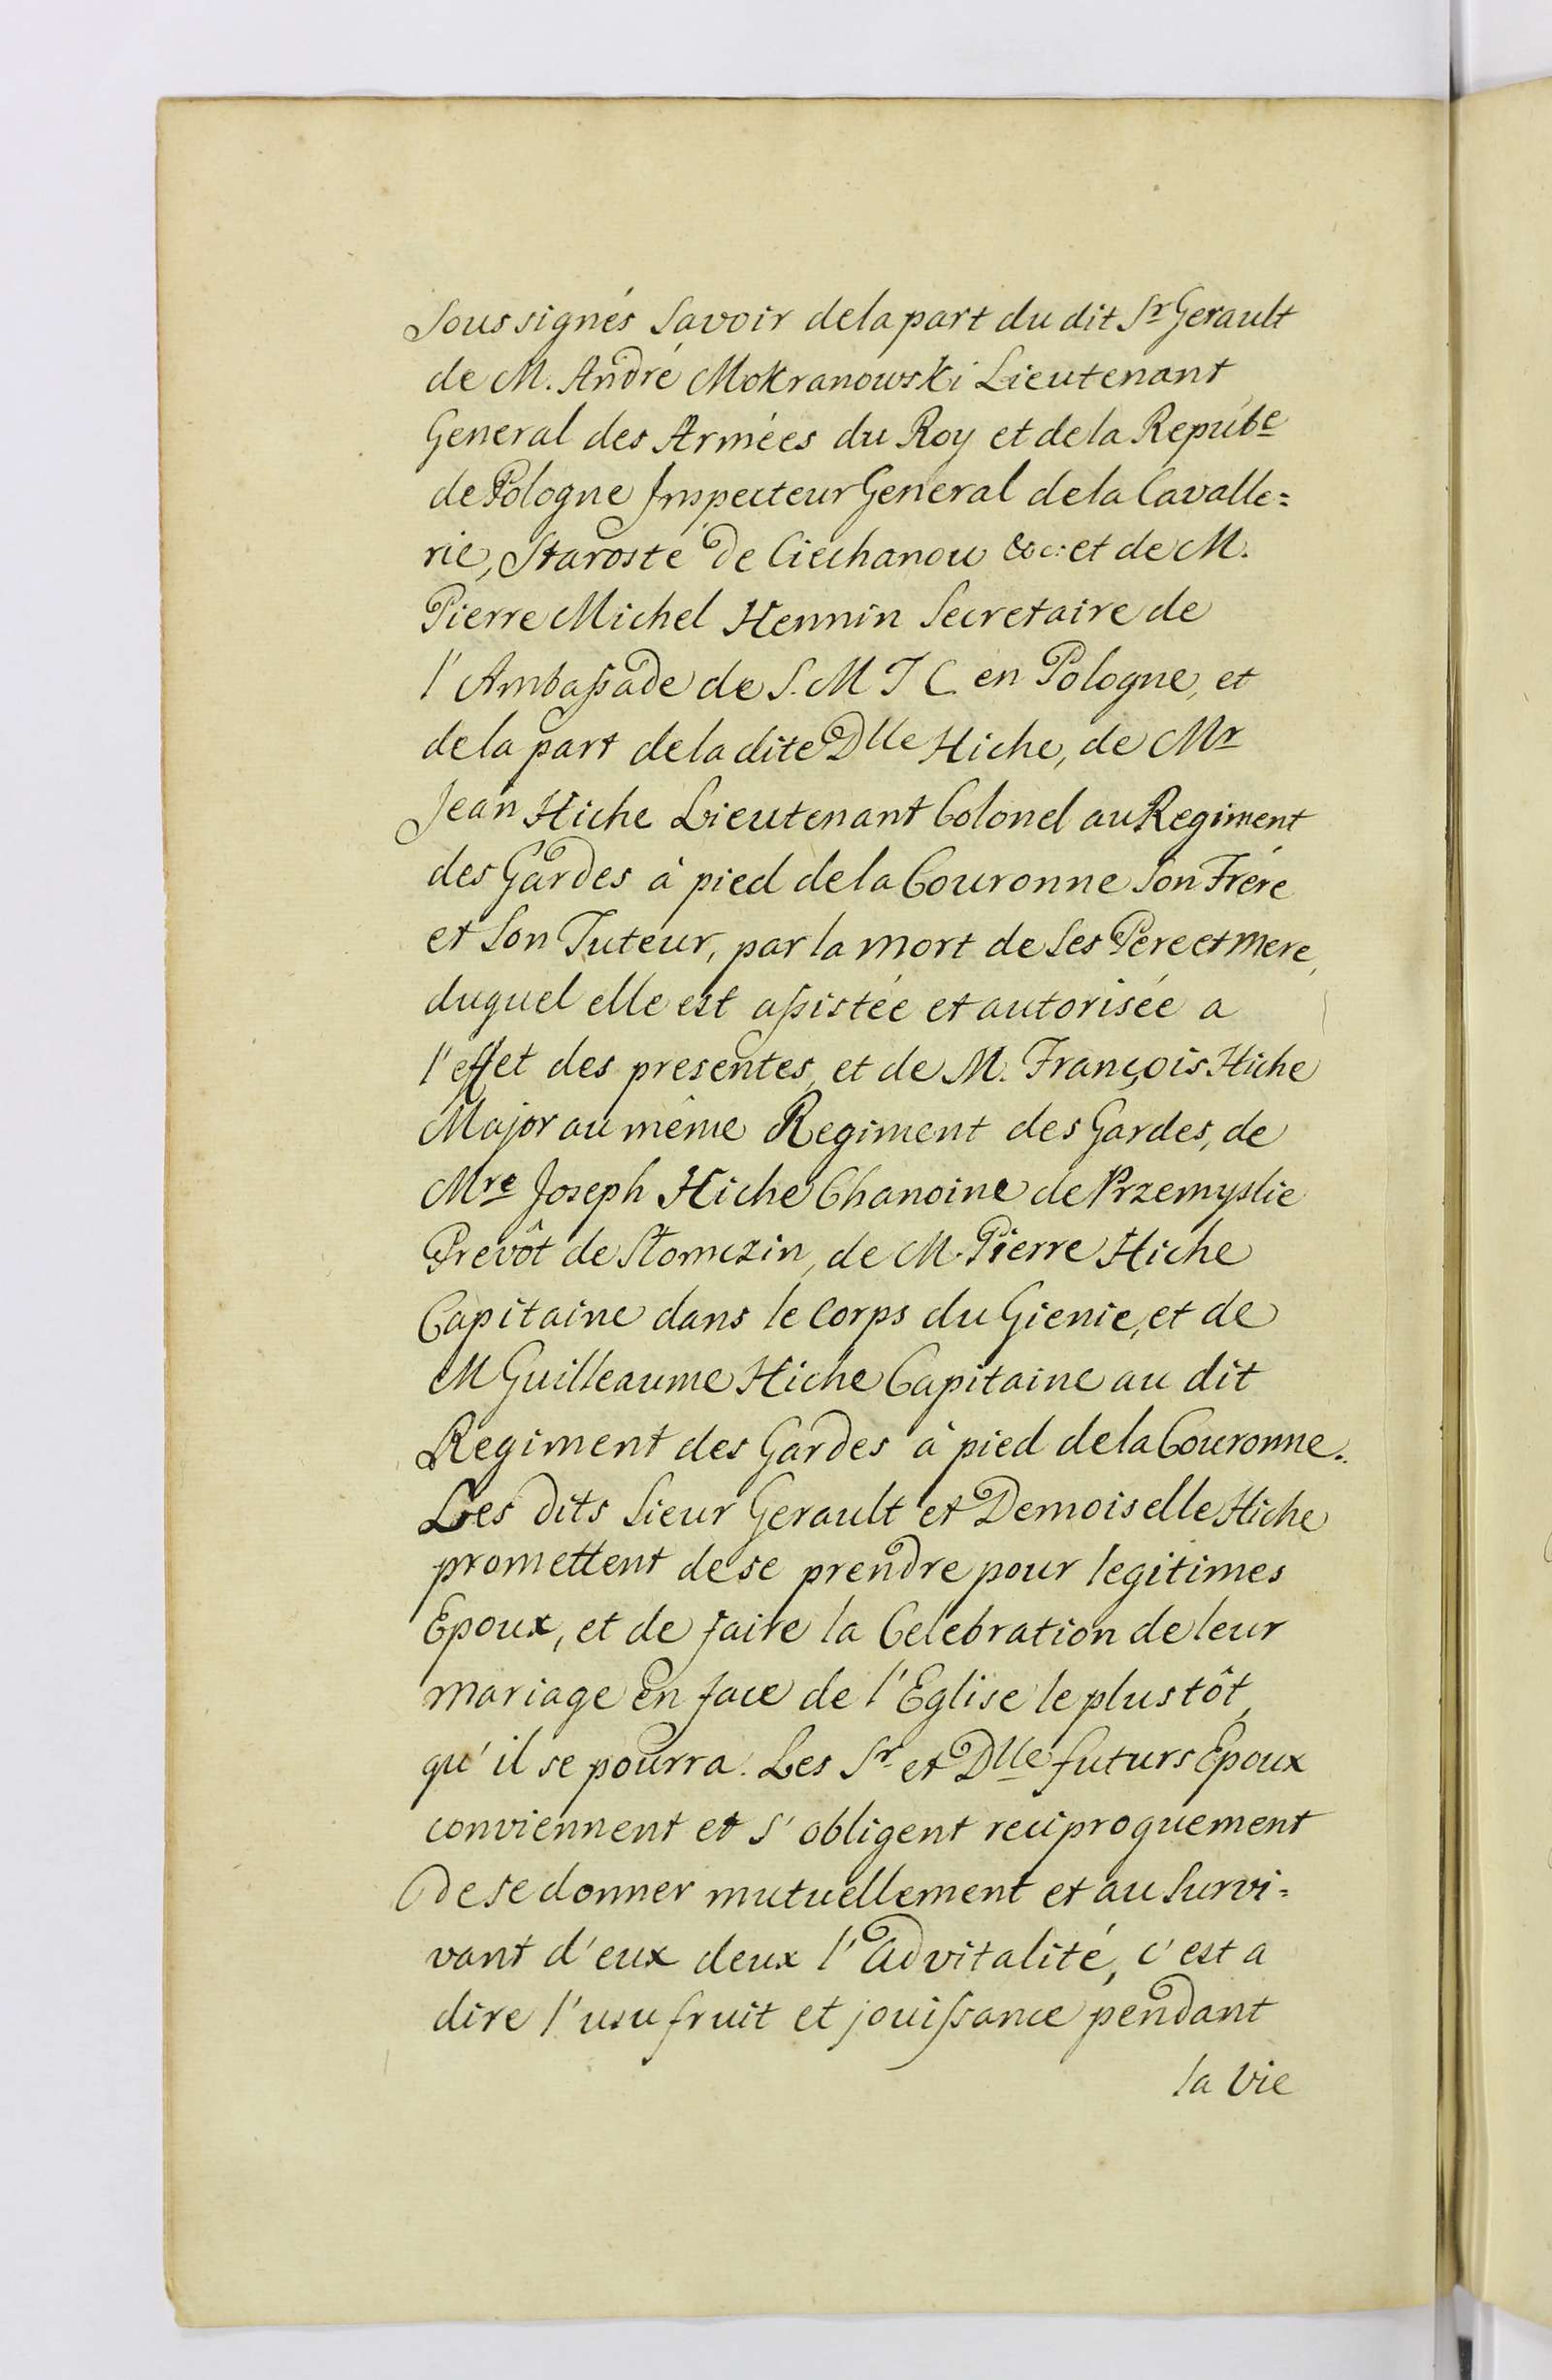 Soussignés Savoir dela part du dit Sr Gerault
de M. André Mokranowski Lieutenant
General des Armées du Roy et de la Repúbe
de Pologne Inspecteur General dela Cavalle=
rie, Staroste de Ciechanow &c: et de M.
Pierre Michel Hennin Secretaire de
l'Ambassade de S. M T C en Pologne, et
dela part dela dite Dlle Hiche, de Mr
Jean Hiche Lieutenant Colonel au Regiment
des Gardes à pied dela Couronne Son Frére
et Son Tuteur, par la mort de Ses Pere et mere,
duquel elle est assistée et autorisée a
l'effet des presentes, et de M. François Hiche
Major au même Regiment des Gardes, de
Mre Joseph Hiche Chanoine de Przemyslie
Prevôt de Stomczin, de M. Pierre Hiche
Capitaine dans le Corps du Gienie, et de
M Guilleaume Hiche Capitaine au dit
Regiment des Gardes à pied dela Couronne.
Les dits Sieur Gerault et Demoiselle Hiche
promettent de se prendre pour legitimes
Epoux, et de faire la Celebration de leur
mariage en face de l'Eglise le plustôt,
qu'il se pourra. Les Sr et Dlle futurs Epoux
conviennent et s'obligent reciproquement
de se donner mutuellement et au Survi=
vant d'eux deux l'advitalité, c'est a
dire l'usufruit et jouissance pendant
la Vie